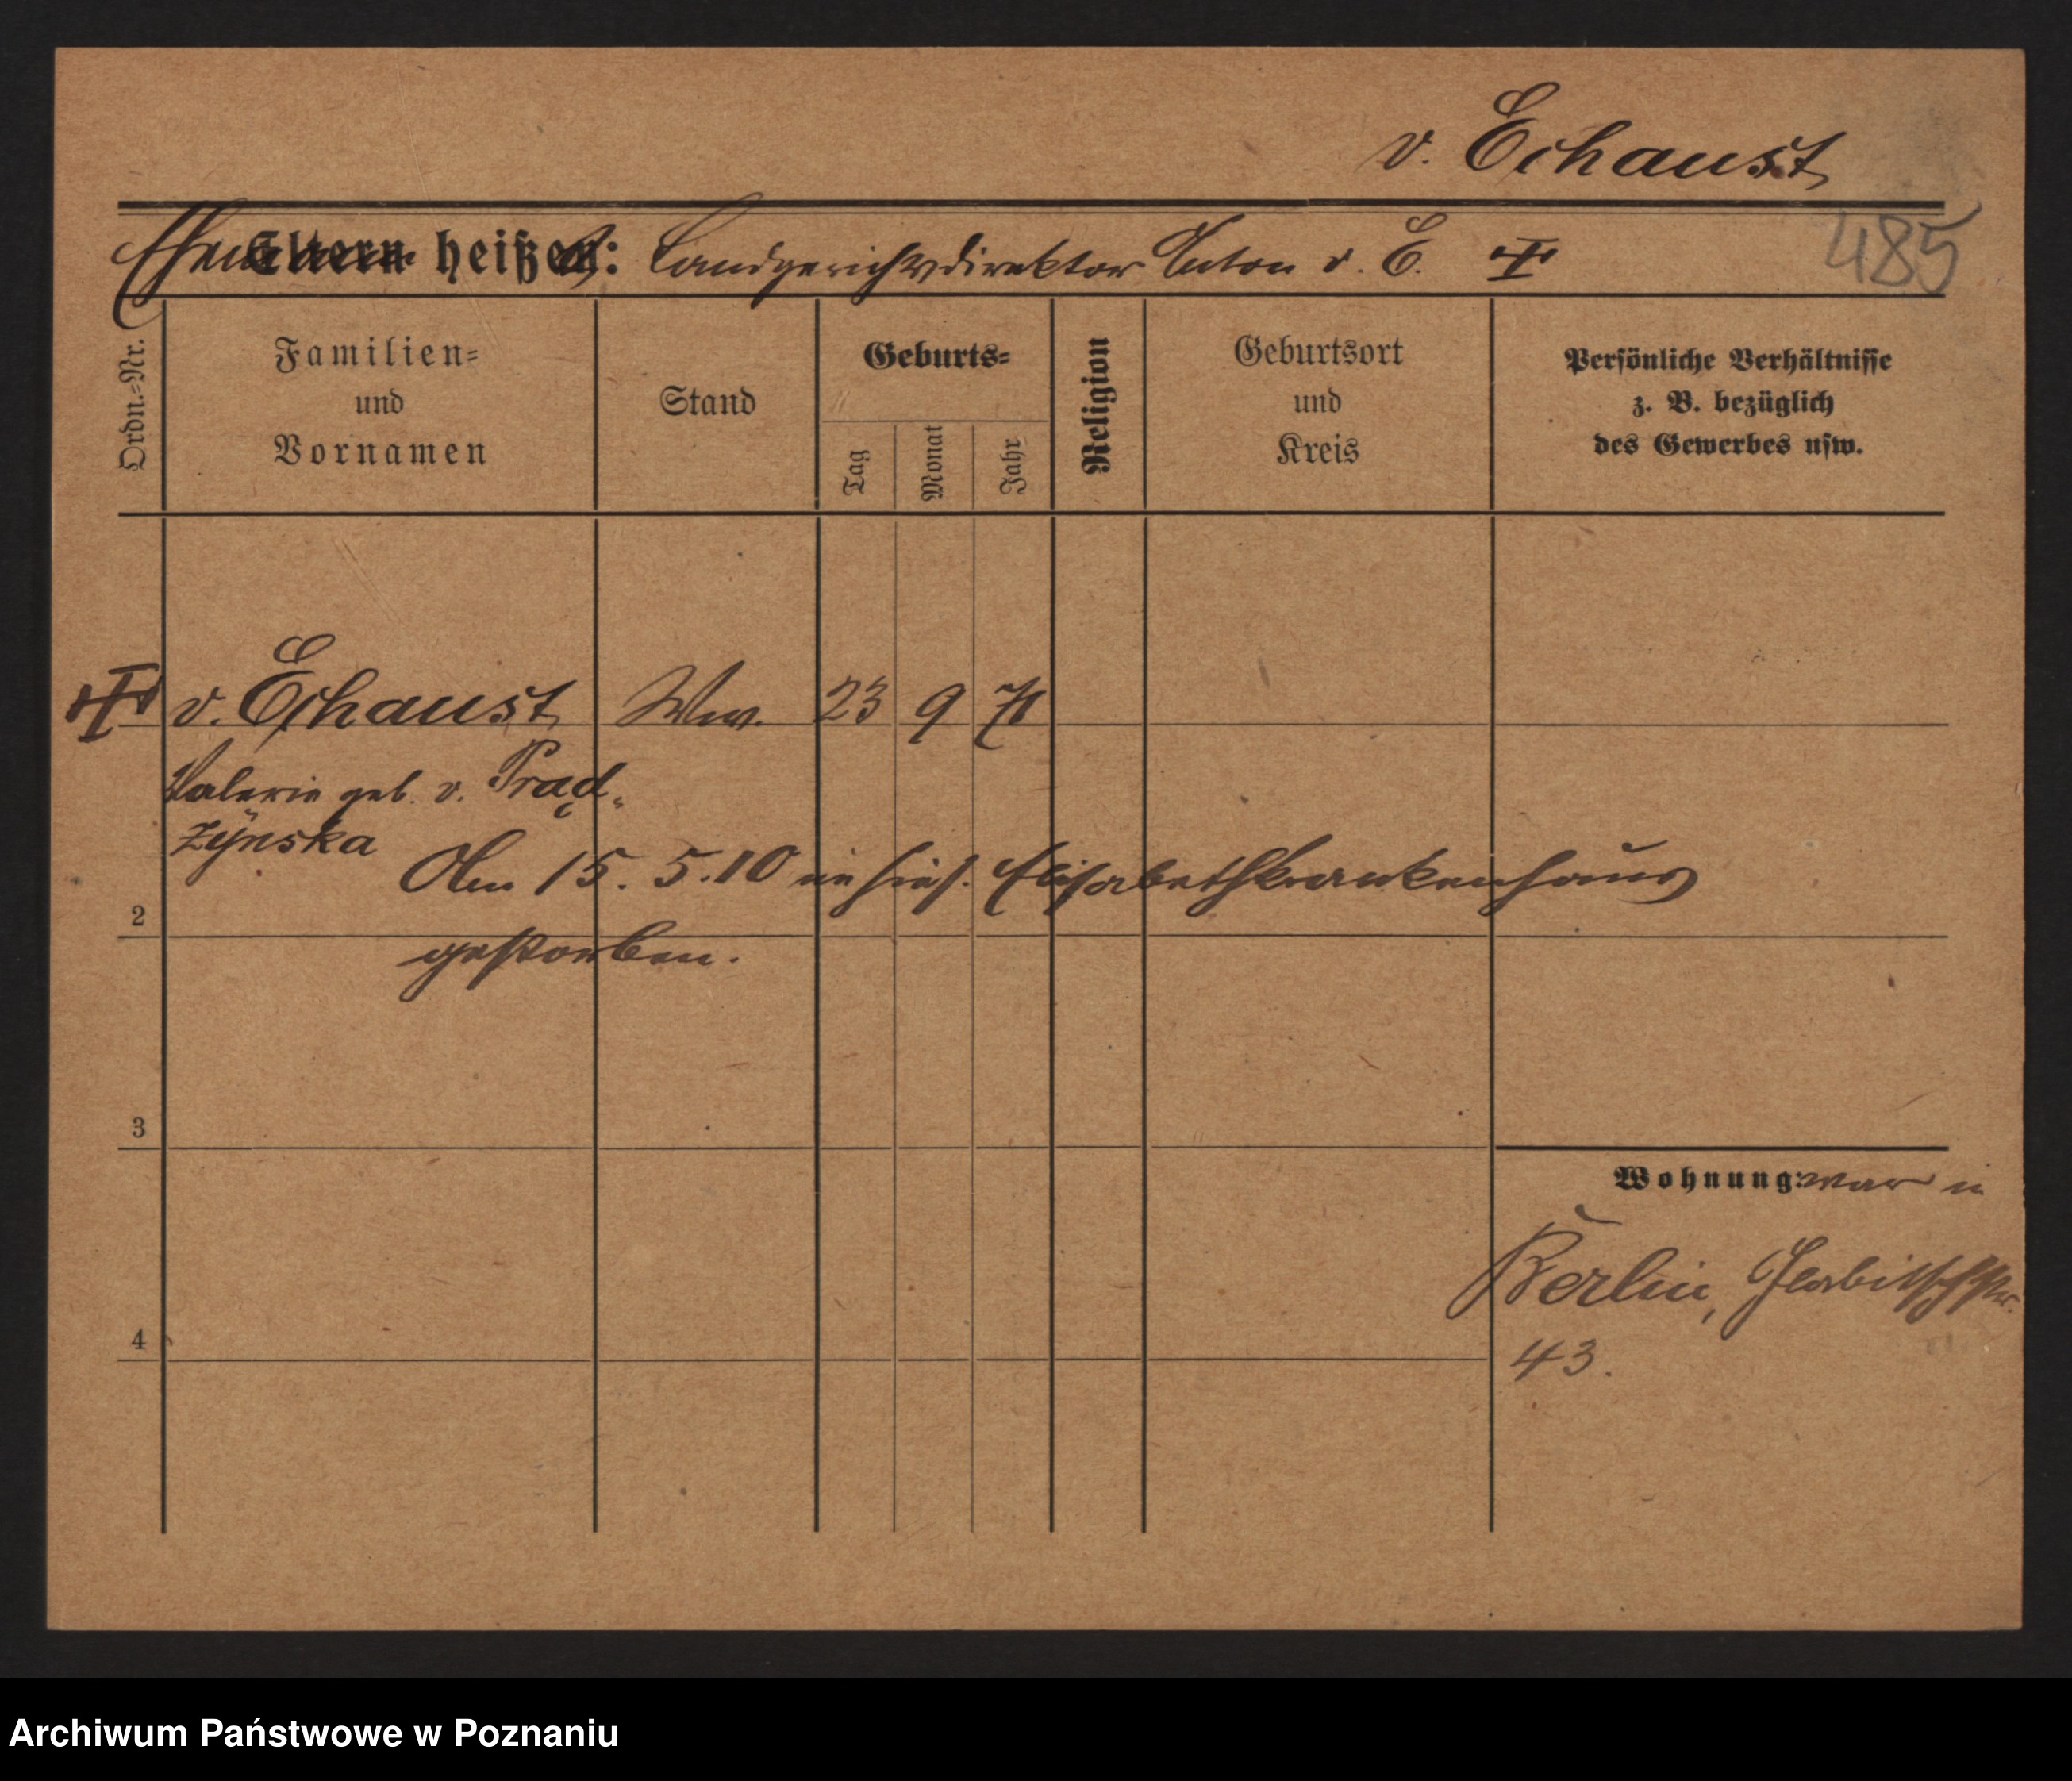 v. Echaust
Ehemann heißt: Landgerichtsdirektor Anton v. E. ‡
485
Ordn.-Nr.
Familien-
und
Vornamen
Stand
Geburts-
Tag
Monat
Jahr
Religion
Geburtsort
und
Kreis
Persönliche Verhältnisse
z. B. bezüglich
des Gewerbes usw.
v. Echaust Ww. 23 9
Valerie geb. v. Prąd-
zynska
Am 15. 5. 10 im hies. Elisabethkrankenhaus
2
gestorben.
3
Wohnung: war in
Berlin,
4
43.
Archiwum Państwowe w Poznaniu